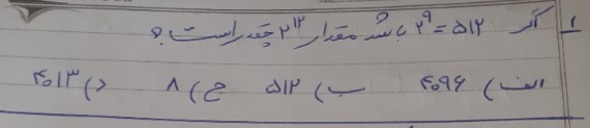 ۱ اگر ۲⁹ = ۵۱۲ باشد مقدار ۲¹² چقدر است؟
الف) ۴۰۹۶ ب) ۵۱۲ ج) ۸ د) ۴۰۱۳